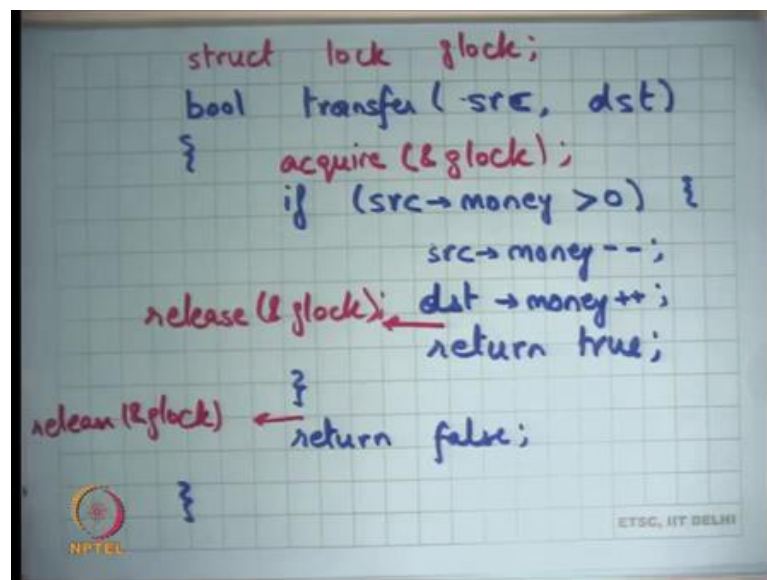 struct lock glock;
bool transfer( src, dst)
{ acquire (&glock);
if (src→money >0) {
src→money--;
release(&glock); dst→money++;
return true;
}
relean(&glock)
return false;
}
NPTEL
ETSC, IIT DELHI